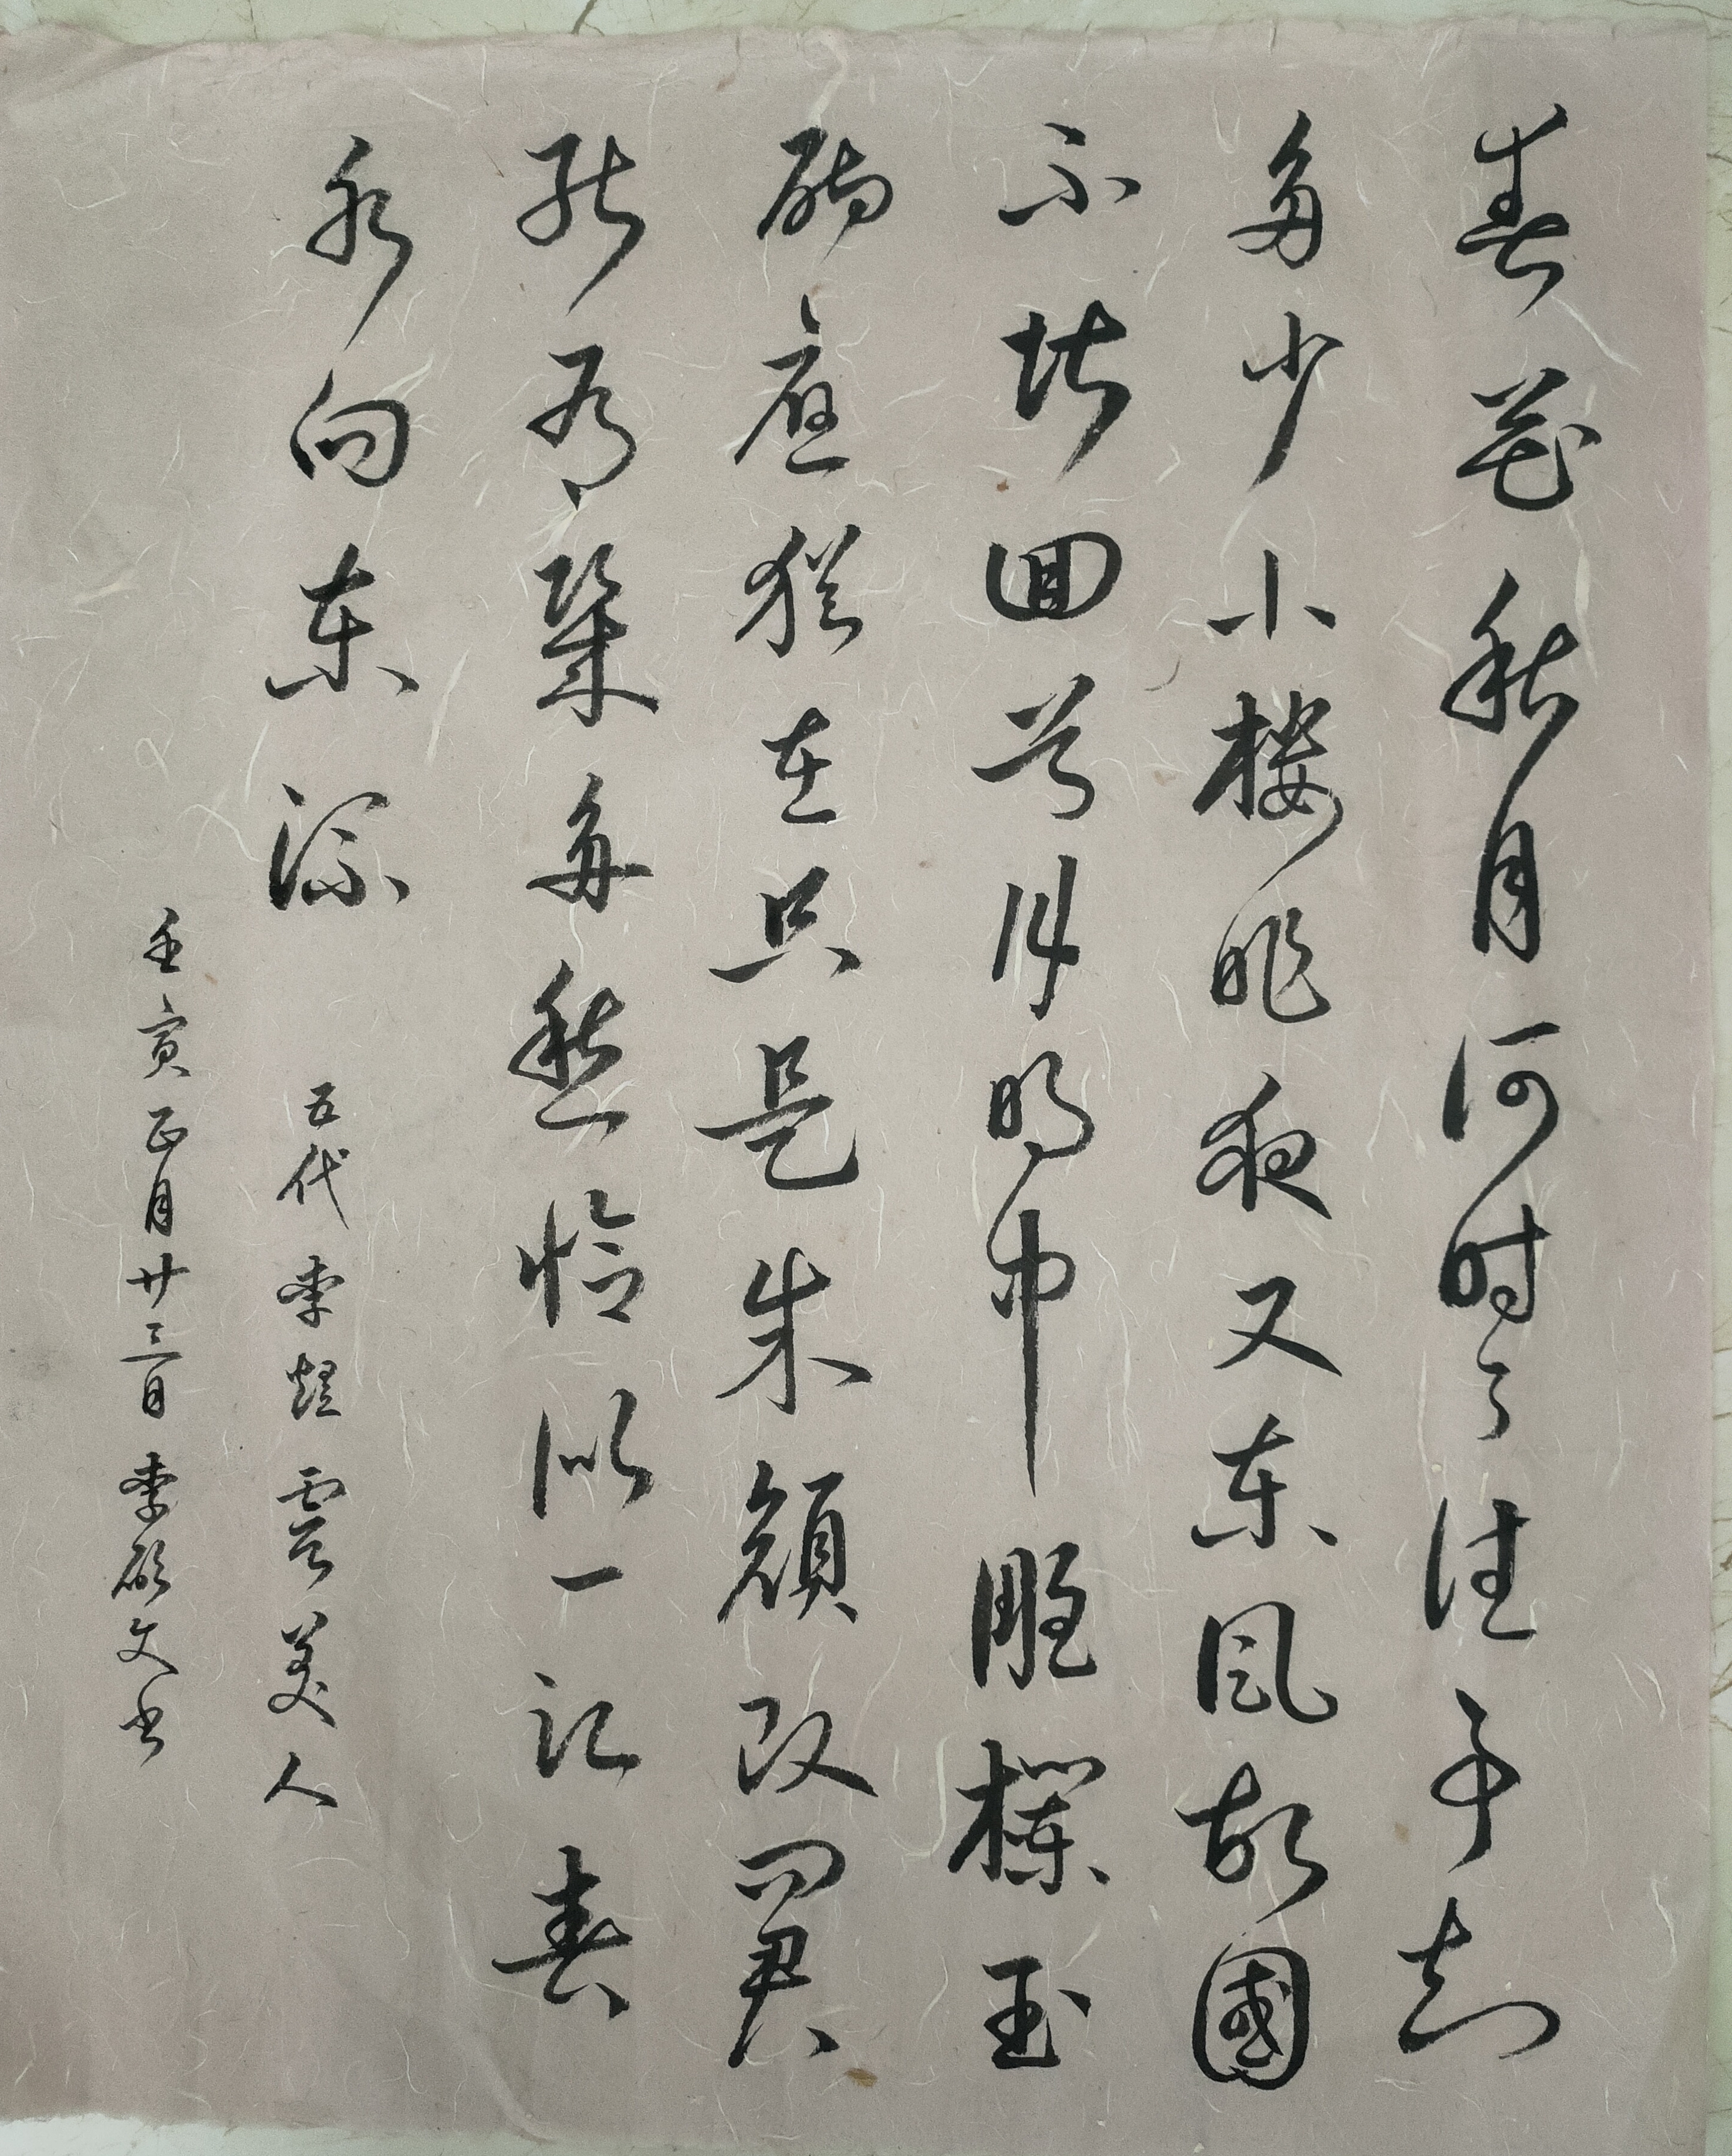 春花秋月何时了往事知
多少小楼昨夜又东风故國
不堪回首月明中雕欄玉
砌應猶在只是朱顏改问君
能有幾多愁恰似一江春
水向东流 五代李煜虞美人
壬寅正月廿三日李文书